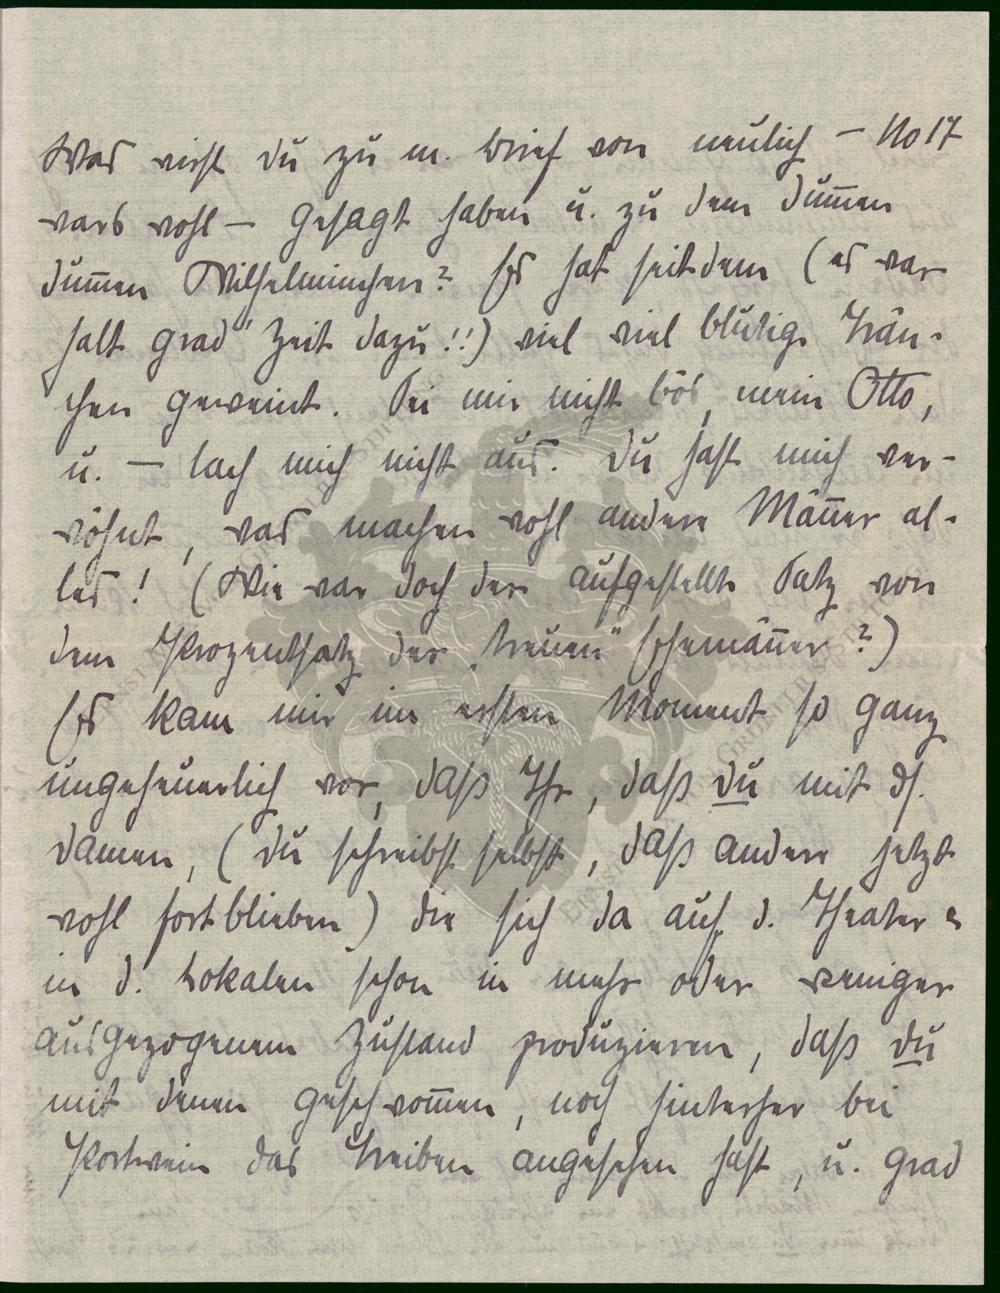 Was wirst du zu m. Brief von neulich – No 17
wars wohl – gesagt haben u. zu dem dum̄en
dum̄en Wilhelminchen? Es hat seitdem (es war
halt grad' Zeit dazu!!) viel viel blutige Trän-
chen geweint. Sei mir nicht bös, mein Otto,
u. – lach mich nicht aus. Du hast mich ver-
wöhnt, was machen wohl andere Män̄er al-
les! (Wie war doch der aufgestellte Satz von
dem Prozentsatz der „treuen" Ehemän̄er?)
Es kam mir im ersten Moment so ganz
ungeheuerlich vor, daß Ihr, daß du mit ds.
Damen, (du schreibst selbst, daß andere jetzt
wohl fortblieben) die sich da auf d. Theater u
in d. Lokalen schon in mehr oder weniger
ausgezogenem Zustand produzieren, daß du
mit denen geschwom̄en, noch hinterher bei
Portwein das Treiben angesehen hast, u. grad